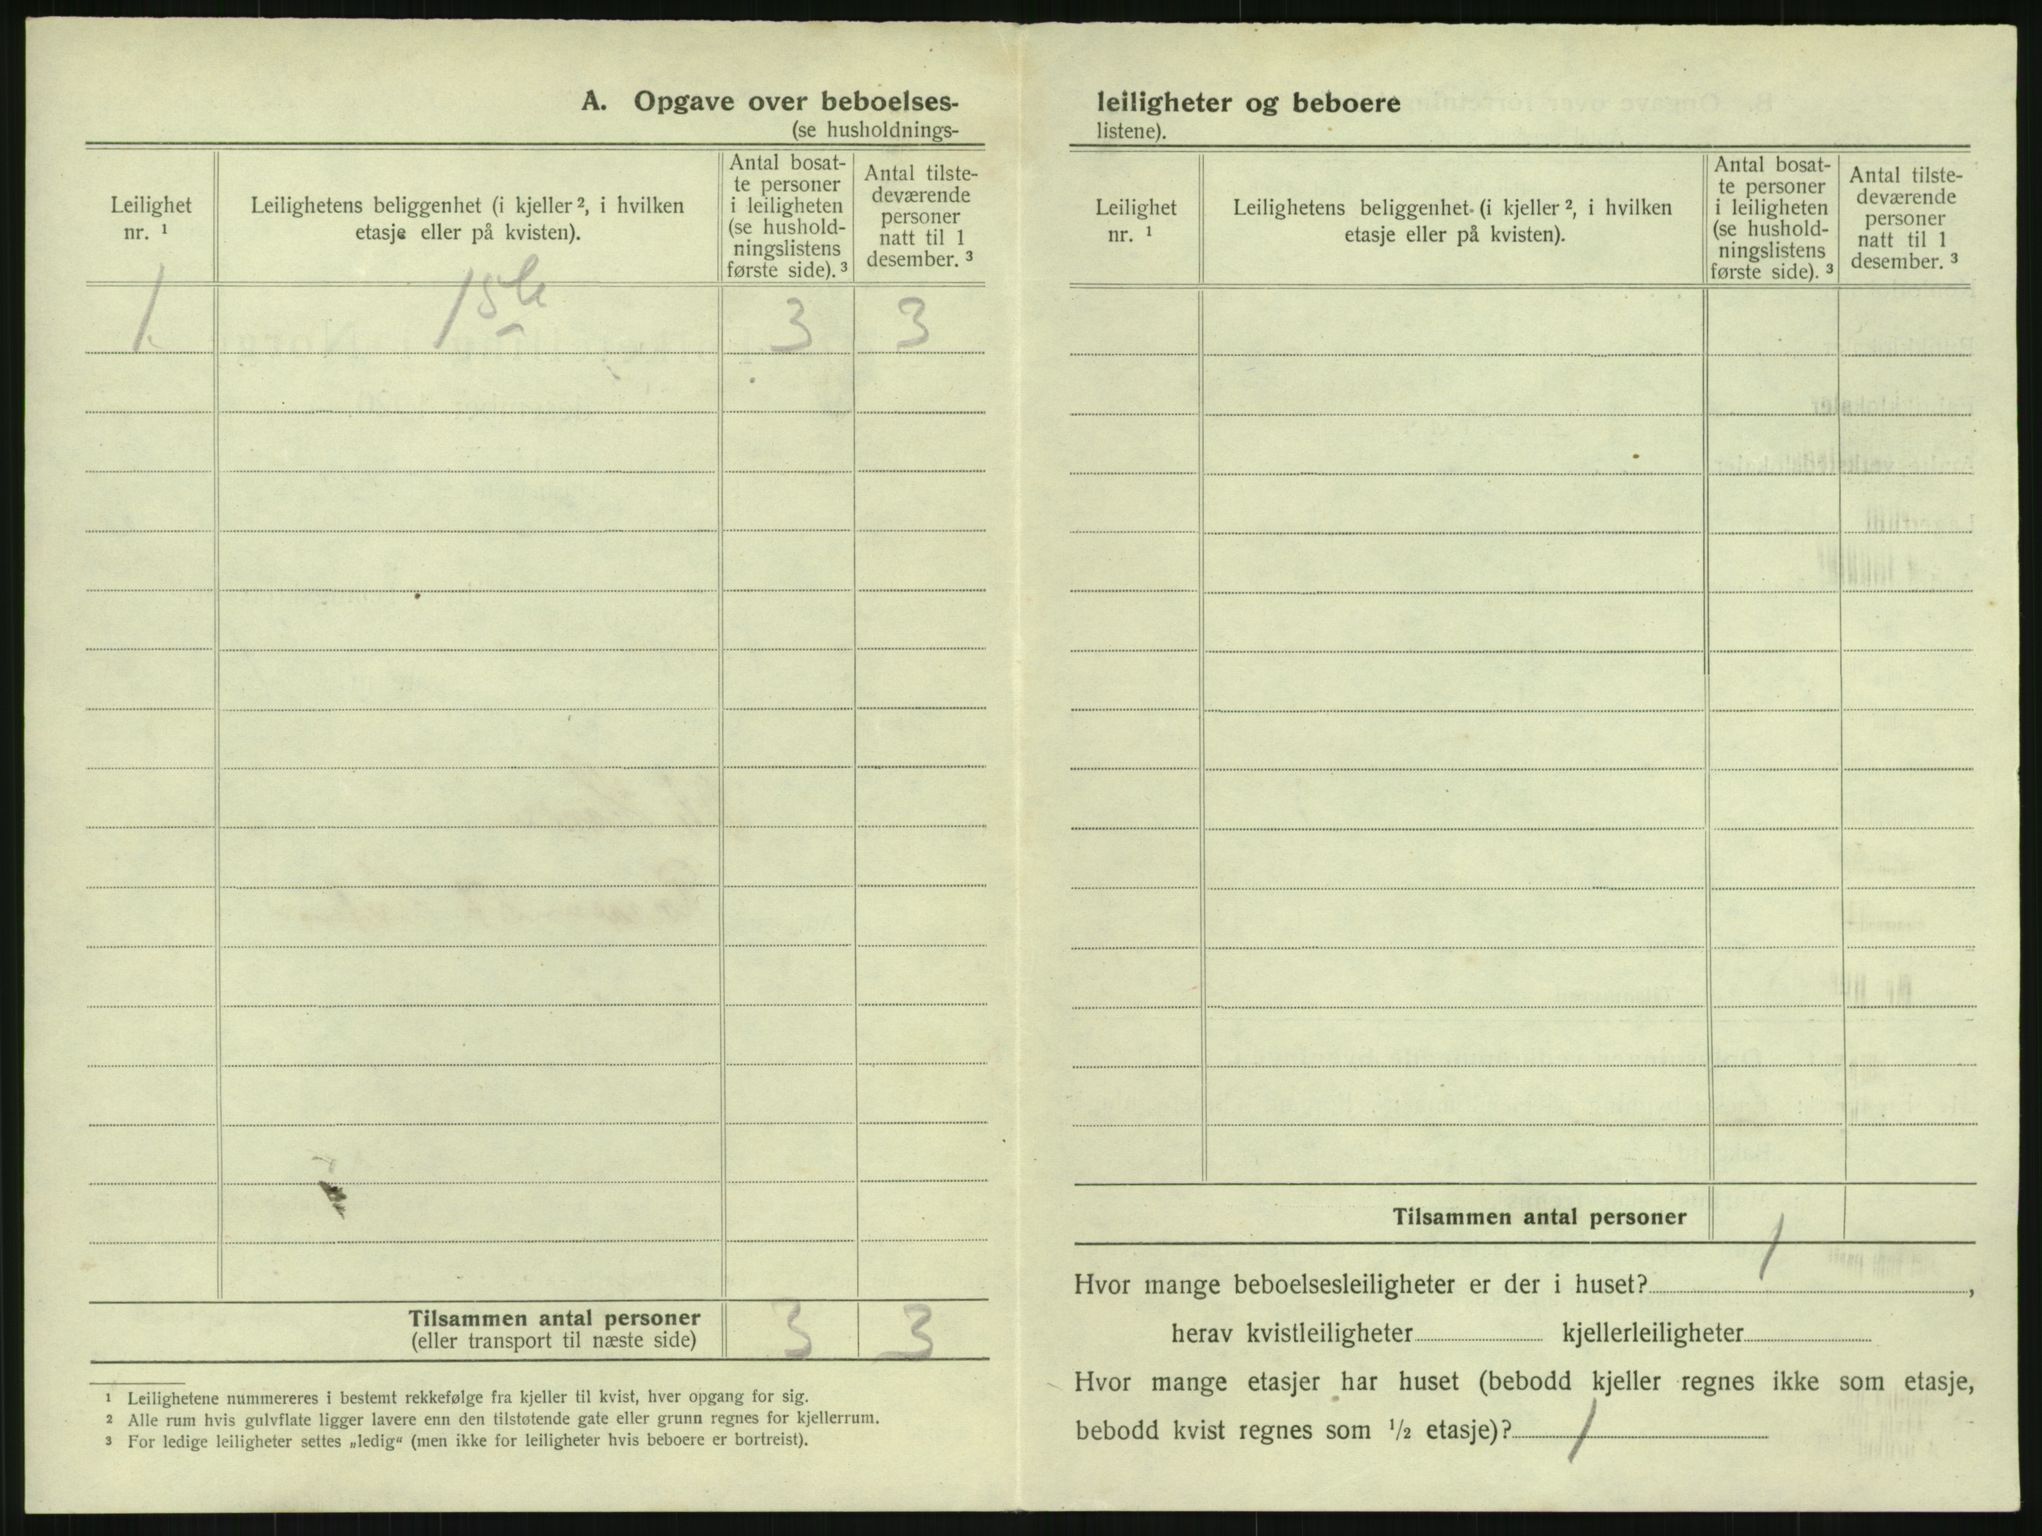 A. Opgave over beboelses-
(se husholdnings-
Leilighet
nr. ¹
Leilighetens beliggenhet (i kjeller ², i hvilken
etasje eller på kvisten).
Antal bosat-
te personer
i leiligheten
(se hushold-
ningslistens
første side). ³
Antal tilste-
deværende
personer
natt til 1
desember. ³
1. 1 ste 3 3
Tilsammen antal personer 3 3
(eller transport til næste side)
¹ Leilighetene nummereres i bestemt rekkefølge fra kjeller til kvist, hver opgang for sig.
² Alle rum hvis gulvflate ligger lavere enn den tilstøtende gate eller grunn regnes for kjellerrum.
³ For ledige leiligheter settes „ledig“ (men ikke for leiligheter hvis beboere er bortreist).
leiligheter og beboere
listene).
Leilighet
nr. ¹
Leilighetens beliggenhet (i kjeller ², i hvilken
etasje eller på kvisten).
Antal bosat-
te personer
i leiligheten
(se hushold-
ningslistens
første side). ³
Antal tilste-
deværende
personer
natt til 1
desember. ³
Tilsammen antal personer
Hvor mange beboelsesleiligheter er der i huset? 1,
herav kvistleiligheter kjellerleiligheter
Hvor mange etasjer har huset (bebodd kjeller regnes ikke som etasje,
bebodd kvist regnes som ½ etasje)? 1